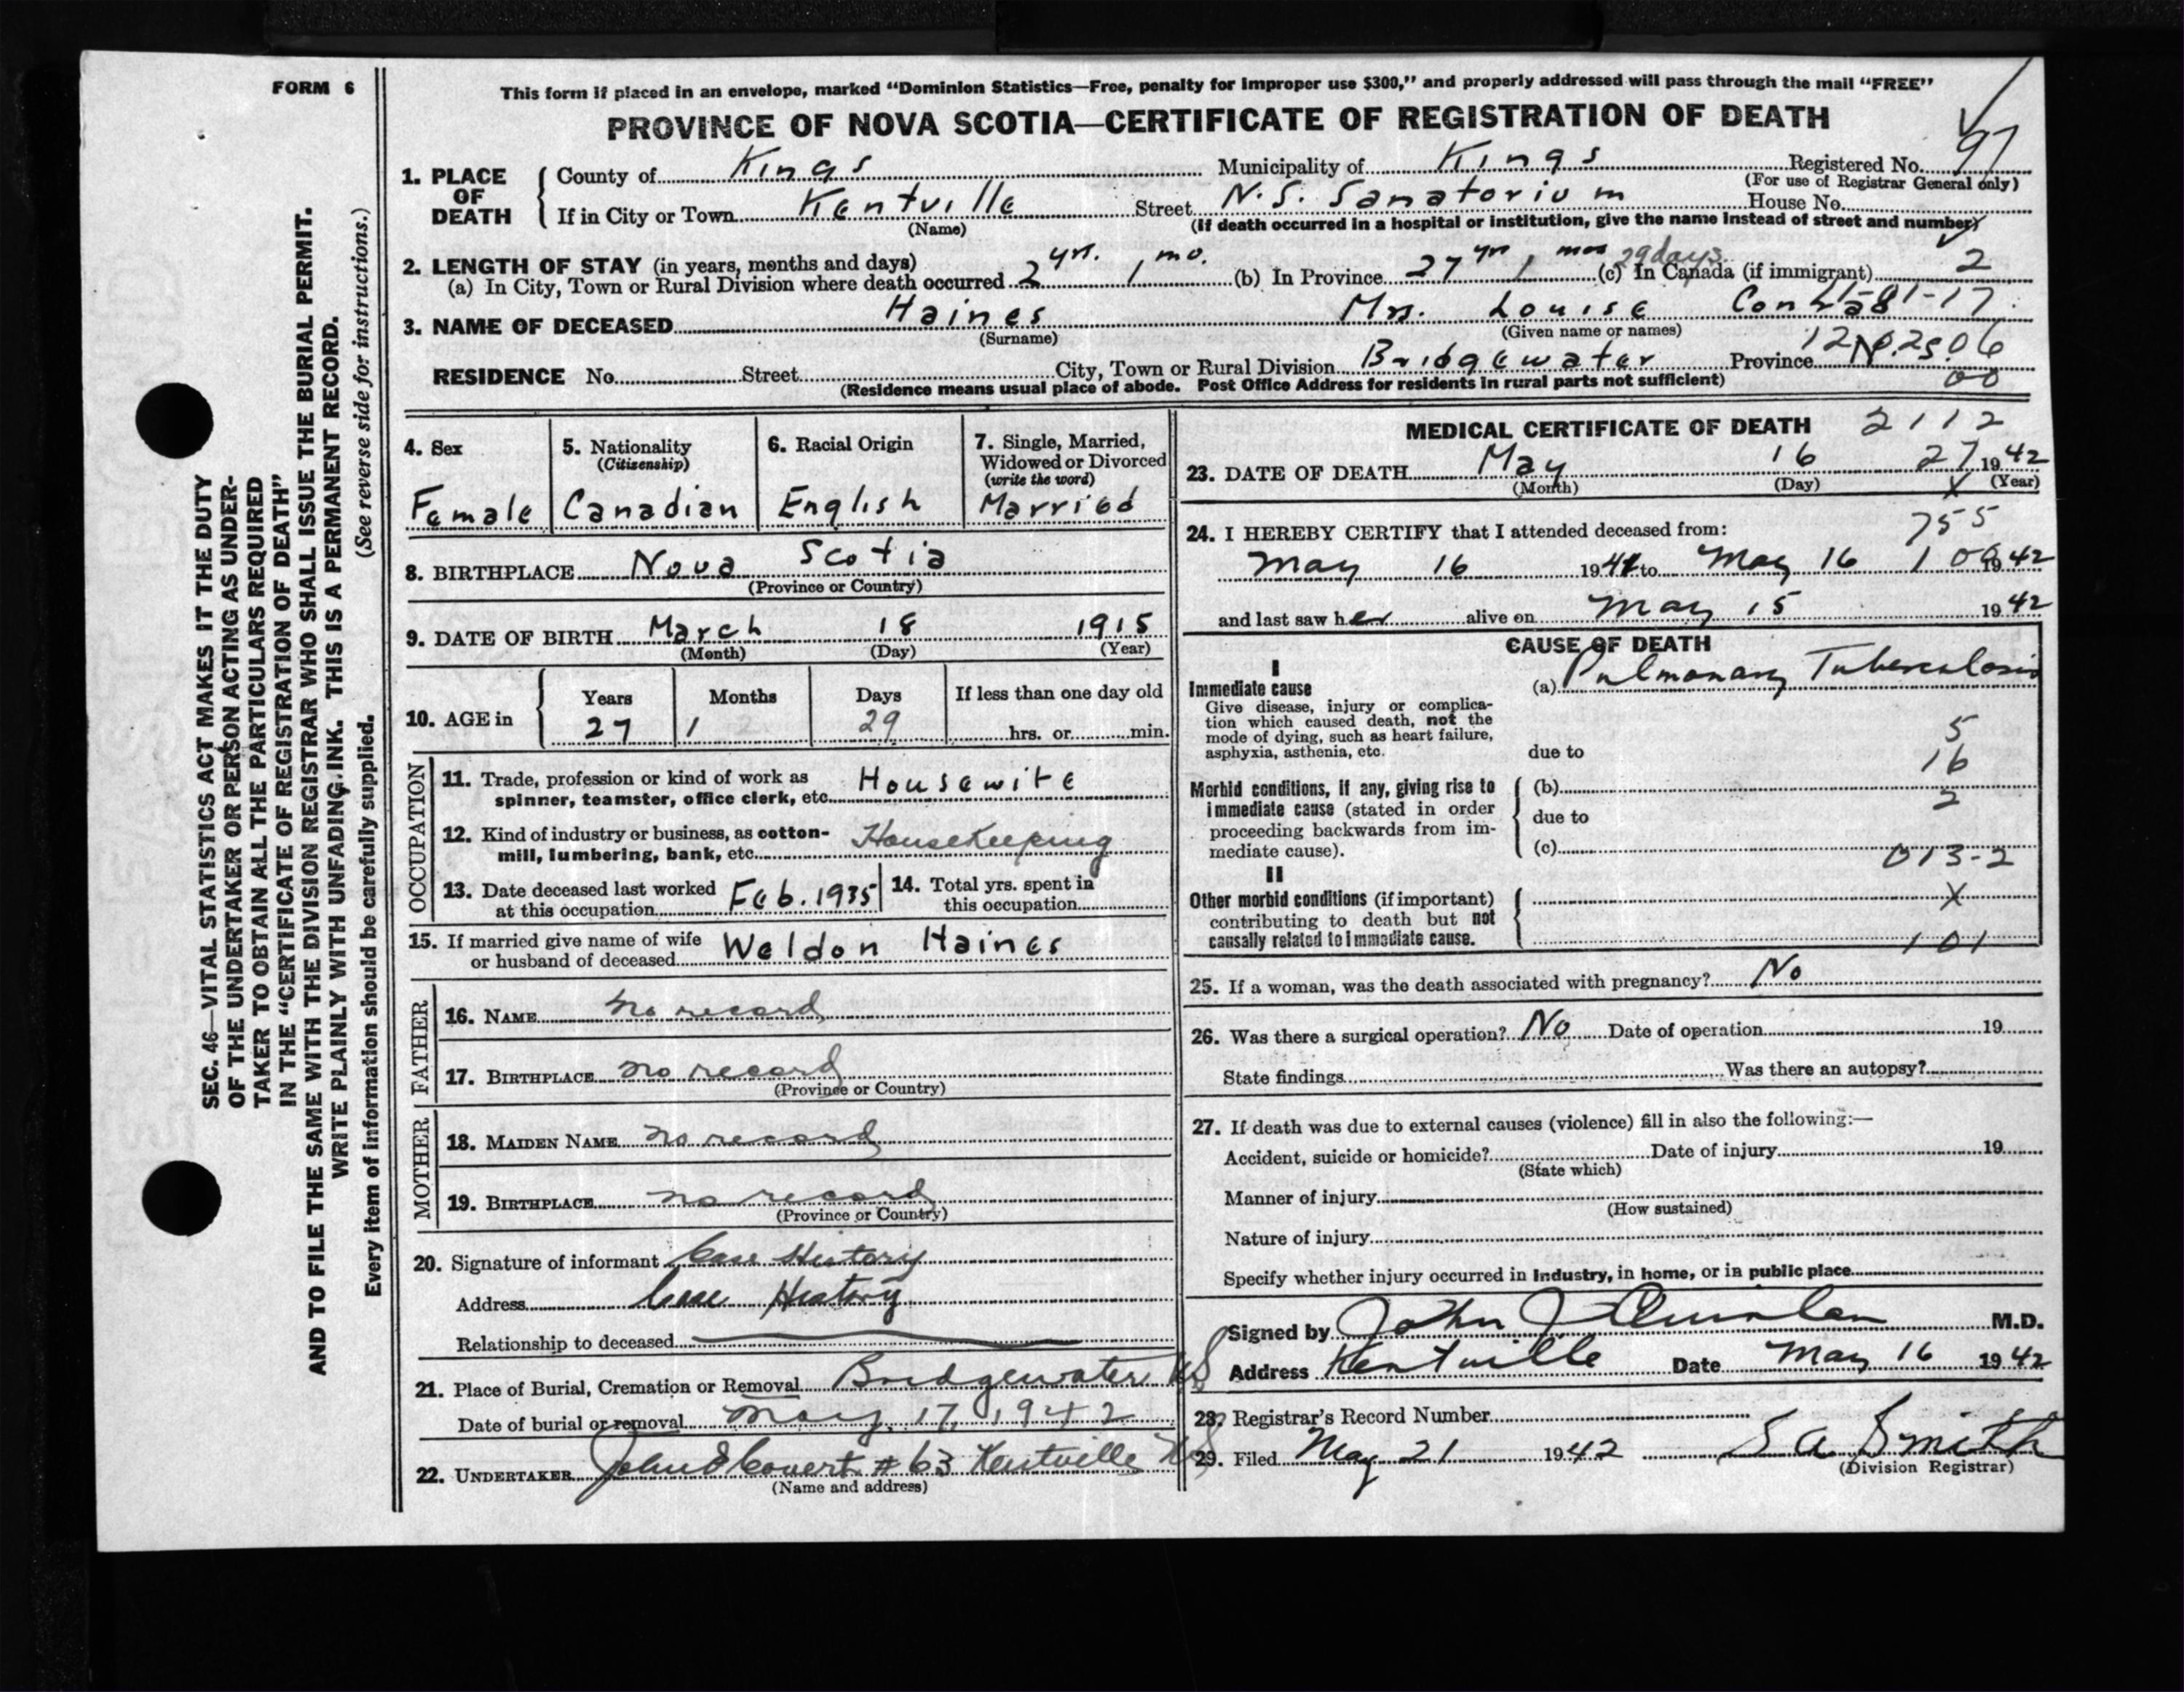 FORM 6
This form if placed in an envelope, marked "Dominion Statistics—Free, penalty for improper use $300," and properly addressed will pass through the mail "FREE"
PROVINCE OF NOVA SCOTIA—CERTIFICATE OF REGISTRATION OF DEATH
SEC. 46—VITAL STATISTICS ACT MAKES IT THE DUTY
OF THE UNDERTAKER OR PERSON ACTING AS UNDER-
TAKER TO OBTAIN ALL THE PARTICULARS REQUIRED
IN THE "CERTIFICATE OF REGISTRATION OF DEATH"
AND TO FILE THE SAME WITH THE DIVISION REGISTRAR WHO SHALL ISSUE THE BURIAL PERMIT.
WRITE PLAINLY WITH UNFADING INK. THIS IS A PERMANENT RECORD.
(See reverse side for instructions.)
Every item of information should be carefully supplied.
1. PLACE OF DEATH
County of Kings Municipality of Kings Registered No. 97
(For use of Registrar General only)
If in City or Town Kentville Street N.S. Sanatorium House No.
(Name) (If death occurred in a hospital or institution, give the name instead of street and number)
2. LENGTH OF STAY (in years, months and days)
(a) In City, Town or Rural Division where death occurred 2 yrs. 1 mo. (b) In Province 27 yr 1 mos 29 days (c) In Canada (if immigrant) 2
3. NAME OF DECEASED Haines Mrs. Louise Conrad
(Surname) (Given name or names)
RESIDENCE No. Street City, Town or Rural Division Bridgewater Province N.S.
(Residence means usual place of abode. Post Office Address for residents in rural parts not sufficient)
00
4. Sex
Female
5. Nationality
(Citizenship)
Canadian
6. Racial Origin
English
7. Single, Married,
Widowed or Divorced
(write the word)
Married
8. BIRTHPLACE Nova Scotia
(Province or Country)
9. DATE OF BIRTH March 18 1915
(Month) (Day) (Year)
10. AGE in
Years Months Days If less than one day old
27 1 29 hrs. or min.
OCCUPATION
11. Trade, profession or kind of work as
spinner, teamster, office clerk, etc. Housewife
12. Kind of industry or business, as cotton-
mill, lumbering, bank, etc. Housekeeping
13. Date deceased last worked
at this occupation Feb. 1935
14. Total yrs. spent in
this occupation
15. If married give name of wife
or husband of deceased Weldon Haines
FATHER
16. NAME no record
17. BIRTHPLACE no record
(Province or Country)
MOTHER
18. MAIDEN NAME no record
19. BIRTHPLACE no record
(Province or Country)
20. Signature of informant Case History
Address Case History
Relationship to deceased
21. Place of Burial, Cremation or Removal Bridgewater NS
Date of burial or removal May 17, 1942
22. UNDERTAKER John E Covert # 63 Kentville NS
(Name and address)
MEDICAL CERTIFICATE OF DEATH 2112
23. DATE OF DEATH May 16 27 1942
(Month) (Day) (Year)
X
24. I HEREBY CERTIFY that I attended deceased from:
755
May 16 to May 16 1942
and last saw her alive on May 15 1942
CAUSE OF DEATH
I
Immediate cause
Give disease, injury or complica-
tion which caused death, not the
mode of dying, such as heart failure,
asphyxia, asthenia, etc.
(a) Pulmonary Tuberculosis
5
due to
16
Morbid conditions, if any, giving rise to
immediate cause (stated in order
proceeding backwards from im-
mediate cause).
(b)
2
due to
(c)
013-2
II
Other morbid conditions (if important)
contributing to death but not
causally related to immediate cause.
X
101
25. If a woman, was the death associated with pregnancy? No
26. Was there a surgical operation? No Date of operation 19
State findings Was there an autopsy?
27. If death was due to external causes (violence) fill in also the following:—
Accident, suicide or homicide? Date of injury 19
(State which)
Manner of injury
(How sustained)
Nature of injury
Specify whether injury occurred in industry, in home, or in public place
Signed by John J Quinlan M.D.
Address Kentville Date May 16 1942
28. Registrar's Record Number
29. Filed May 21 1942 S A Smith
(Division Registrar)